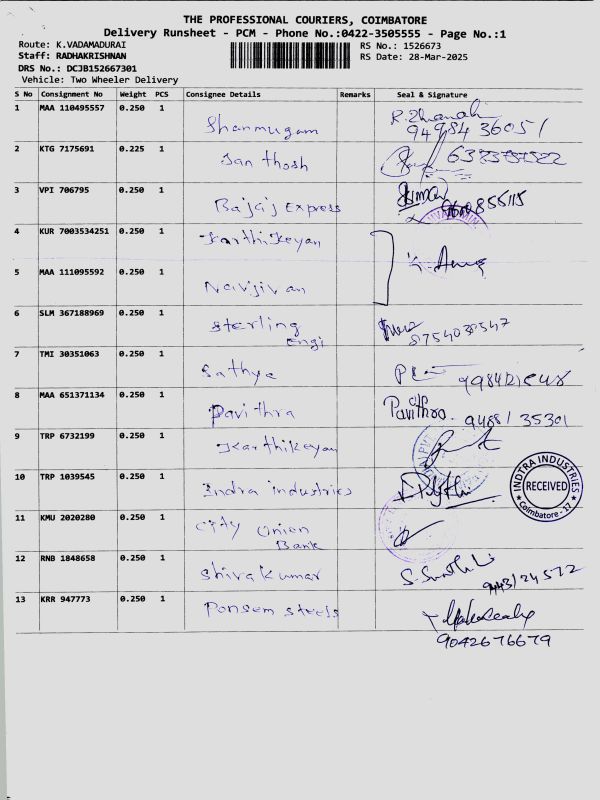 THE PROFESSIONAL COURIERS, COIMBATORE
Delivery Runsheet - PCM - Phone No.:0422-3505555 - Page No.:1
Route: K.VADAMADURAI
RS No.: 1526673
Staff: RADHAKRISHNAN
RS Date: 28-Mar-2025
DRS No.: DCJB152667301
Vehicle: Two Wheeler Delivery
S No Consignment No Weight PCS Consignee Details Remarks Seal & Signature
1 MAA 110495557 0.250 1 Shanmugam
9498436051
2 KTG 7175691 0.225 1 San thosh
3 VPI 706795 0.250 1 Bajaj Express
4 KUR 7003534251 0.250 1 Karthikeyan
5 MAA 111095592 0.250 1 Navjivan
6 SLM 367188969 0.250 1 Sterling
engi
8754038547
7 TMI 30351063 0.250 1 Sathya
8 MAA 651371134 0.250 1 Pavithra Pavithra
94881 35301
9 TRP 6732199 0.250 1 Karthikeyan
10 TRP 1039545 0.250 1 Indra industries
INDTRA INDUSTRIES
RECEIVED
Coimbatore - 17
11 KMU 2020280 0.250 1 City Union
Bank
12 RNB 1848658 0.250 1 Shivakumar
9443124572
13 KRR 947773 0.250 1 Ponsem steels
9042676679